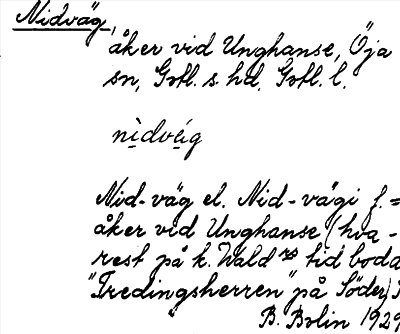 Nidväg,
åker vid Unghanse, Öja
sn, Gotl. s. hd, Gotl. l.
nìdvég
Nid-väg el. Nid-vägi f. =
åker vid Unghanse (hva-
rest på k. Vald rs tid bodd
"Tredingsherren" på Söder)
B. Bolin 1929